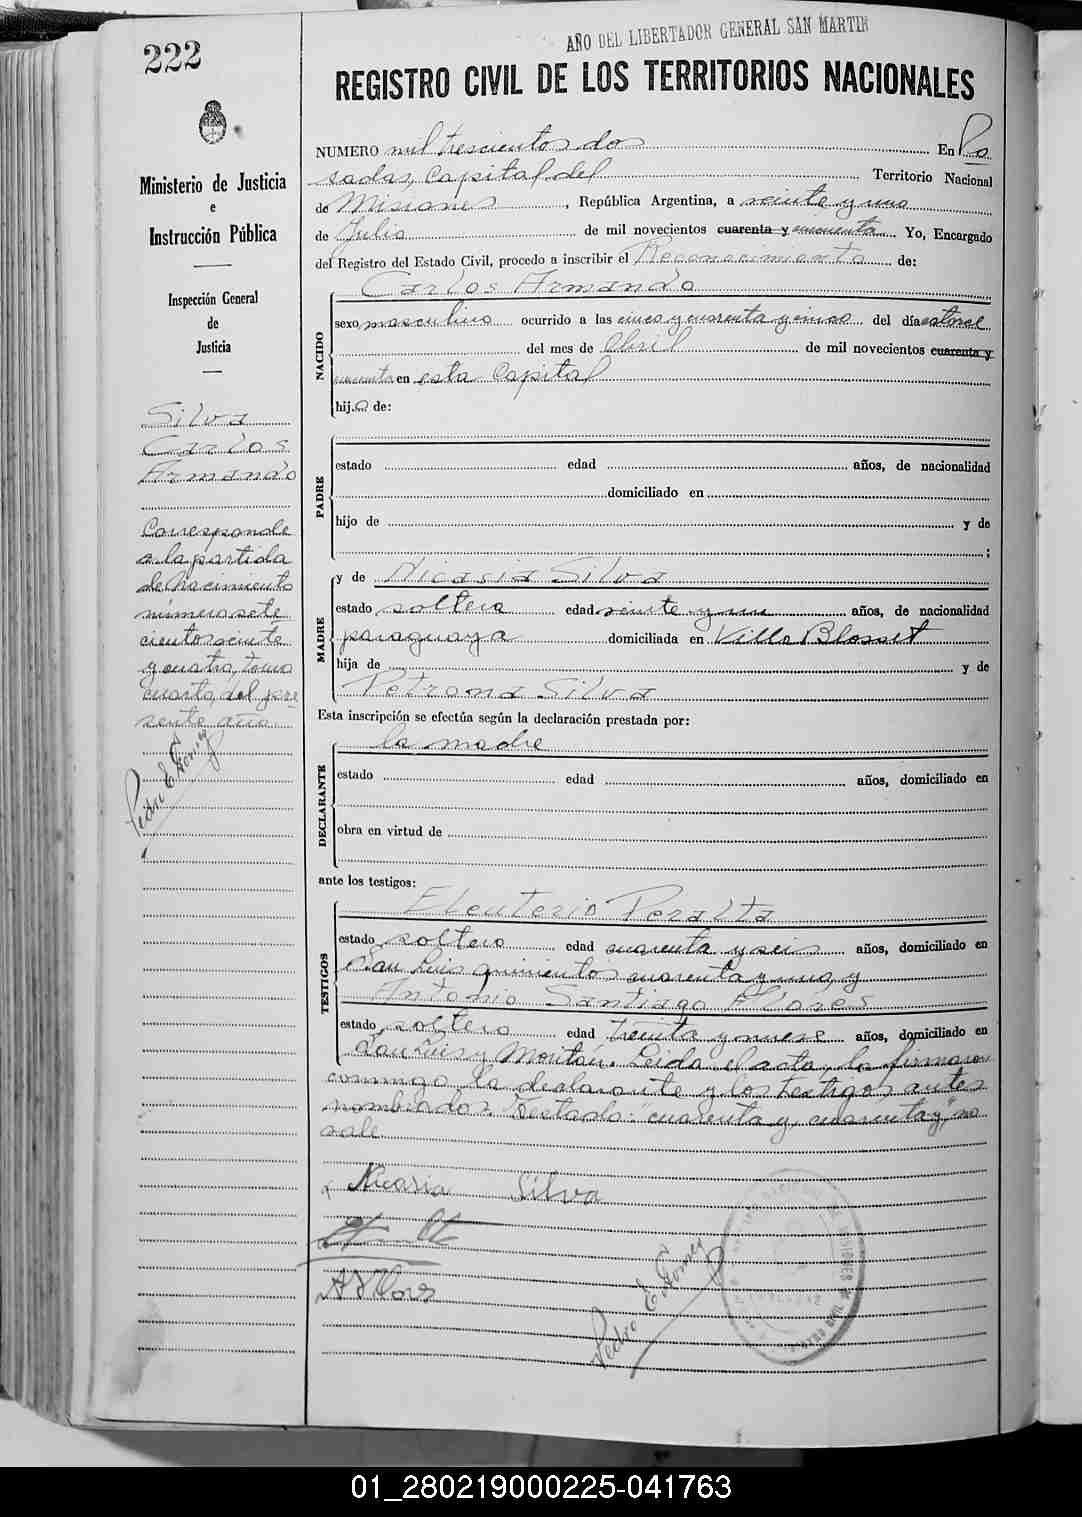 222
AÑO DEL LIBERTADOR GENERAL SAN MARTIN
REGISTRO CIVIL DE LOS TERRITORIOS NACIONALES
Ministerio de Justicia
e
Instrucción Pública
Inspección General
de
Justicia
Silva
Carlos
Armando
Corresponde
a la partida
de nacimiento
número sete
cientos veinte
y cuatro, tomo
cuarto, del pre
sente año.
Pedro E. Gomez
NUMERO mil trescientos dos En Po
sadas, Capital del Territorio Nacional
de Misiones, República Argentina, a veinte y uno
de Julio de mil novecientos cuarenta y cincuenta Yo, Encargado
del Registro del Estado Civil, procedo a inscribir el Reconocimiento de:
NACIDO
Carlos Armando
sexo masculino ocurrido a las cinco y cuarenta y cinco del día catorce
del mes de Abril de mil novecientos cuarenta y
cincuenta en esta Capital
hijo de:
PADRE
estado edad años, de nacionalidad
domiciliado en
hijo de y de
;
MADRE
y de Nicasia Silva
estado soltera edad veinte y un años, de nacionalidad
paraguaya domiciliada en Villa Blosset
hija de y de
Petrona Silva
Esta inscripción se efectúa según la declaración prestada por:
DECLARANTE
la madre
estado edad años, domiciliado en
obra en virtud de
ante los testigos:
TESTIGOS
Eleuterio Peralta
estado soltero edad cuarenta y seis años, domiciliado en
San Luis quinientos cuarenta y uno y
Antonio Santiago Flores
estado soltero edad treinta y nueve años, domiciliado en
San Luis y Moritan. Leida el acta, la firmaron
conmigo la declarante y los testigos antes
nombrados. Testado: cuarenta y, cuarenta y, "no
vale.
Nicasia Silva
A S Flores
Pedro E. Gomez
01_280219000225-041763